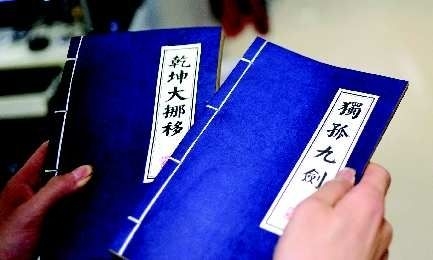 乾坤大挪移
獨孤九劍